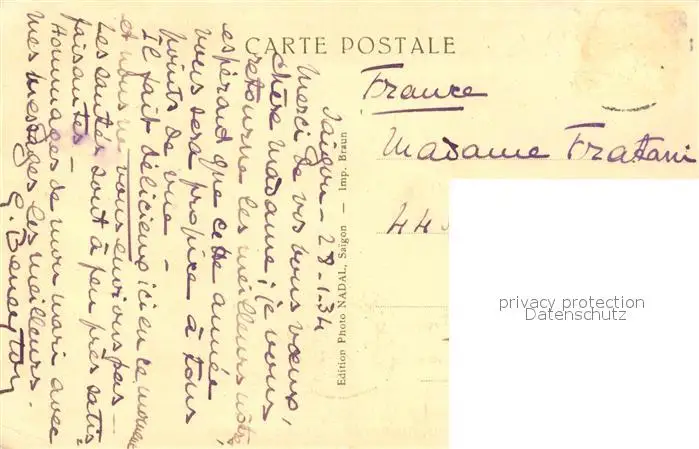 CARTE POSTALE
Saïgon - 28-1-34
Merci de vos bons vœux,
chère madame, je vous
retourne les meilleurs nôtres
espérant que cette année
vous sera propice à tous
points de vue -
Il fait délicieux ici en ce moment
et nous ne vous envions pas -
Les santés sont à peu près satis-
faisantes -
Hommages de mon mari avec
mes messages les meilleurs.
Edition Photo NADAL, Saigon — Imp. Braun
France
Madame Fratani
44
privacy protection
Datenschutz